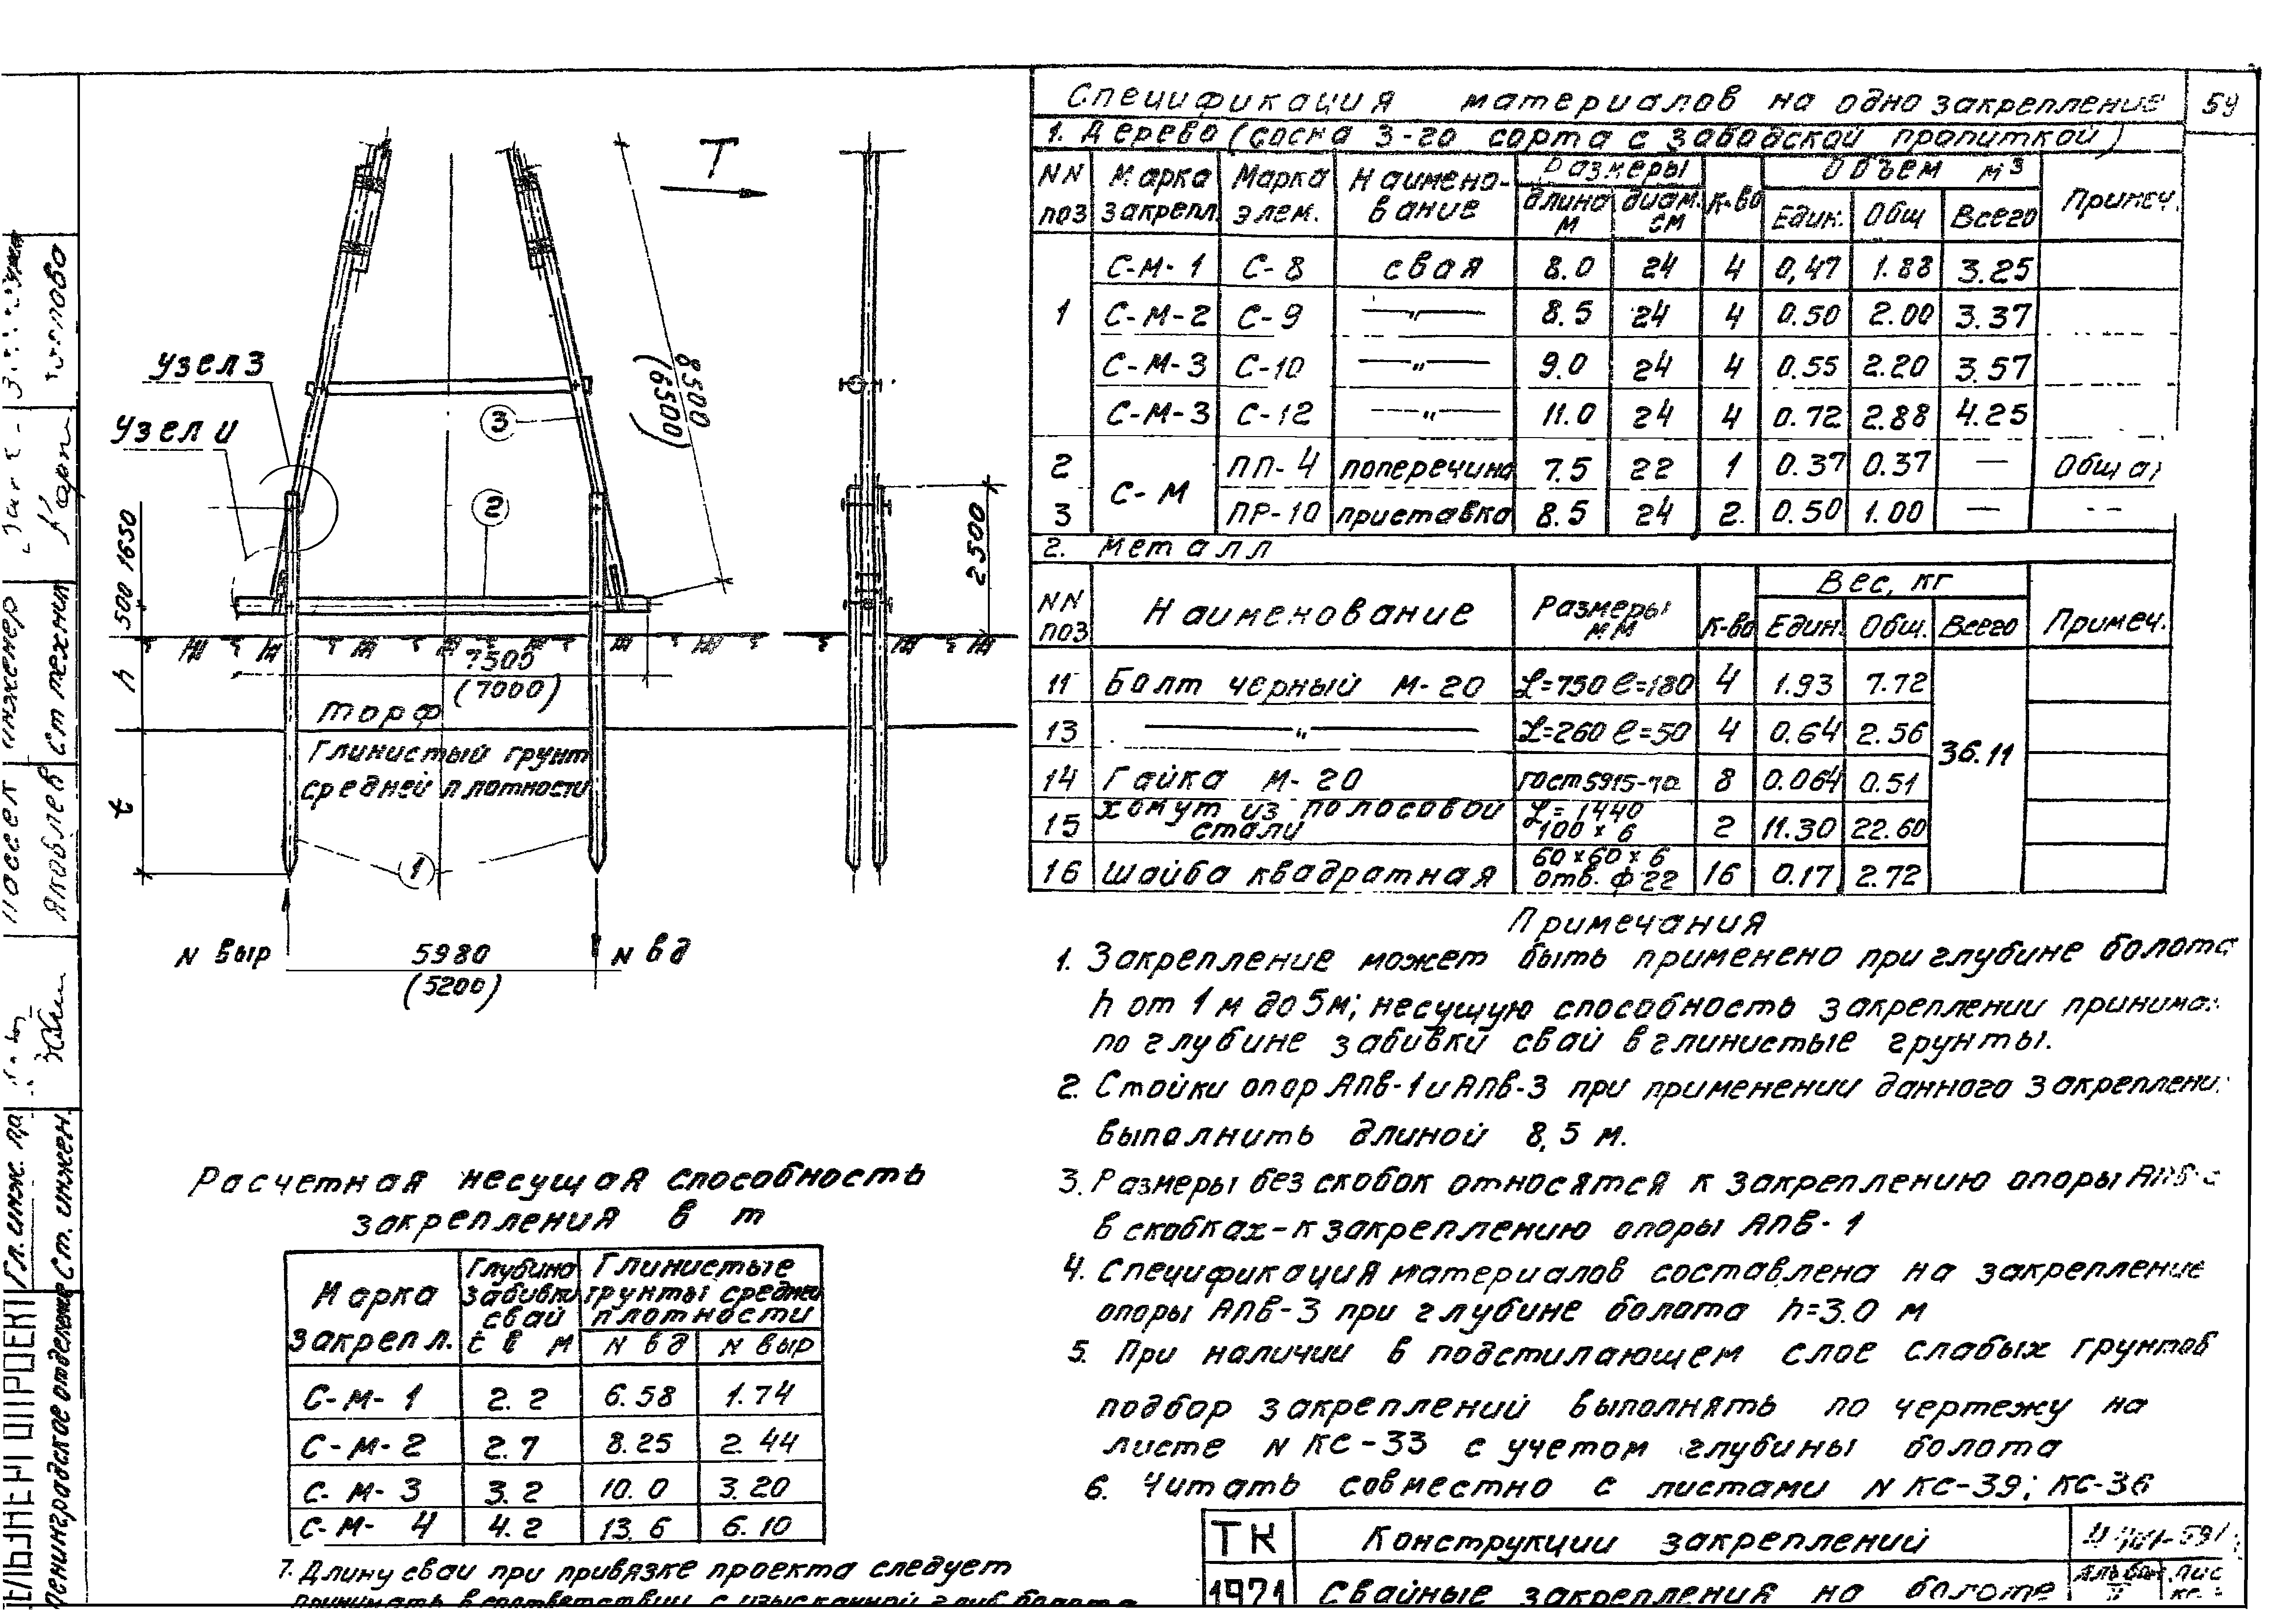 Спецификация материалов на одно закрепление
59
1. Дерево (сосна 3-го сорта с заводской пропиткой)
NN поз | Марка закрепл | Марка элем. | Наименование | Размеры | К-во | Объем м³ | Примеч.
длина м | диам. см | Един. | Общ | Всего
1 | С-М-1 | С-8 | свая | 8.0 | 24 | 4 | 0,47 | 1.88 | 3.25
С-М-2 | С-9 | —"— | 8.5 | 24 | 4 | 0.50 | 2.00 | 3.37
С-М-3 | С-10 | —"— | 9.0 | 24 | 4 | 0.55 | 2.20 | 3.57
С-М-3 | С-12 | —"— | 11.0 | 24 | 4 | 0.72 | 2.88 | 4.25
2 | С-М | ПП-4 | поперечина | 7.5 | 22 | 1 | 0.37 | 0.37 | —
3 | ПР-10 | приставка | 8.5 | 24 | 2. | 0.50 | 1.00 | —
2. Металл
NN поз | Наименование | Размеры мм | К-во | Вес, кг | Примеч.
Един. | Общ. | Всего
11 | Болт черный М-20 | L=750 ℓ=180 | 4 | 1.93 | 7.72 | 36.11
13 | —"— | L=260 ℓ=50 | 4 | 0.64 | 2.56
14 | Гайка М-20 | ГОСТ 5915-70 | 8 | 0.064 | 0.51
15 | Хомут из полосовой стали | L=1440 100×6 | 2 | 11.30 | 22.60
16 | Шайба квадратная | 60×60×6 отв. ф 22 | 16 | 0.17 | 2.72
Т
Узел 3
Узел и
8500
(6500)
3
2
1
1650
500
h
t
2500
7500
(7000)
Торф
Глинистый грунт
средней плотности
N выр
5980
(5200)
N вд
Примечания
1. Закрепление может быть применено при глубине болота
h от 1 м до 5м; несущую способность закреплении
по глубине забивки свай в глинистые грунты.
2. Стойки опор АПВ-1 и АПВ-3 при применении данного
выполнить длиной 8,5 м.
3. Размеры без скобок относятся к закреплению опоры
в скобках-к закреплению опоры АПВ-1
4. Спецификация материалов составлена на закрепление
опоры АПВ-3 при глубине болота h=3.0 м
5. При наличии в подстилающем слое слабых грунтов
подбор закреплений выполнять по чертежу на
листе N КС-33 с учетом глубины болота
6. Читать совместно с листами N КС-39; КС-36
Расчетная несущая способность
закрепления в т
Марка закрепл. | Глубина забивки свай t в м | Глинистые грунты средней плотности
N вд | N выр
С-М-1 | 2.2 | 6.58 | 1.74
С-М-2 | 2.7 | 8.25 | 2.44
С-М-3 | 3.2 | 10.0 | 3.20
С-М-4 | 4.2 | 13.6 | 6.10
7. Длину сваи при привязке проекта следует
принимать в соответствии с изысканной глуб. болота
ТК | Конструкции закреплений
1971 | Свайные закрепления на болоте
Гл. инж. пр.
Ст. инжен.
Ленинградское отделение
Яковлев
инженер
Ст техник